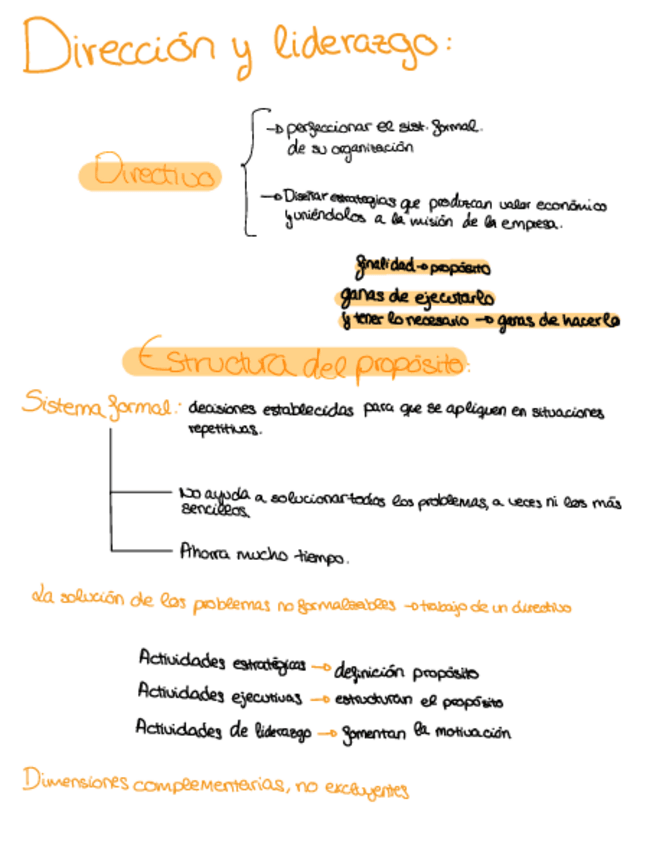 Dirección y liderazgo:
→ perfeccionar el sist. formal.
de su organización
Directivo
→ Diseñar estrategias que produzcan valor económico
y uniéndolos a la misión de la empresa.
finalidad → propósito
ganas de ejecutarlo
y tener lo necesario → ganas de hacerlo
Estructura del propósito:
Sistema formal: decisiones establecidas para que se apliquen en situaciones
repetitivas.
No ayuda a solucionar todos los problemas, a veces ni los más
sencillos.
Ahorra mucho tiempo.
La solución de los problemas no formalizables → trabajo de un directivo
Actividades estratégicas → definición propósito
Actividades ejecutivas → estructuran el propósito
Actividades de liderazgo → fomentan la motivación
Dimensiones complementarias, no excluyentes